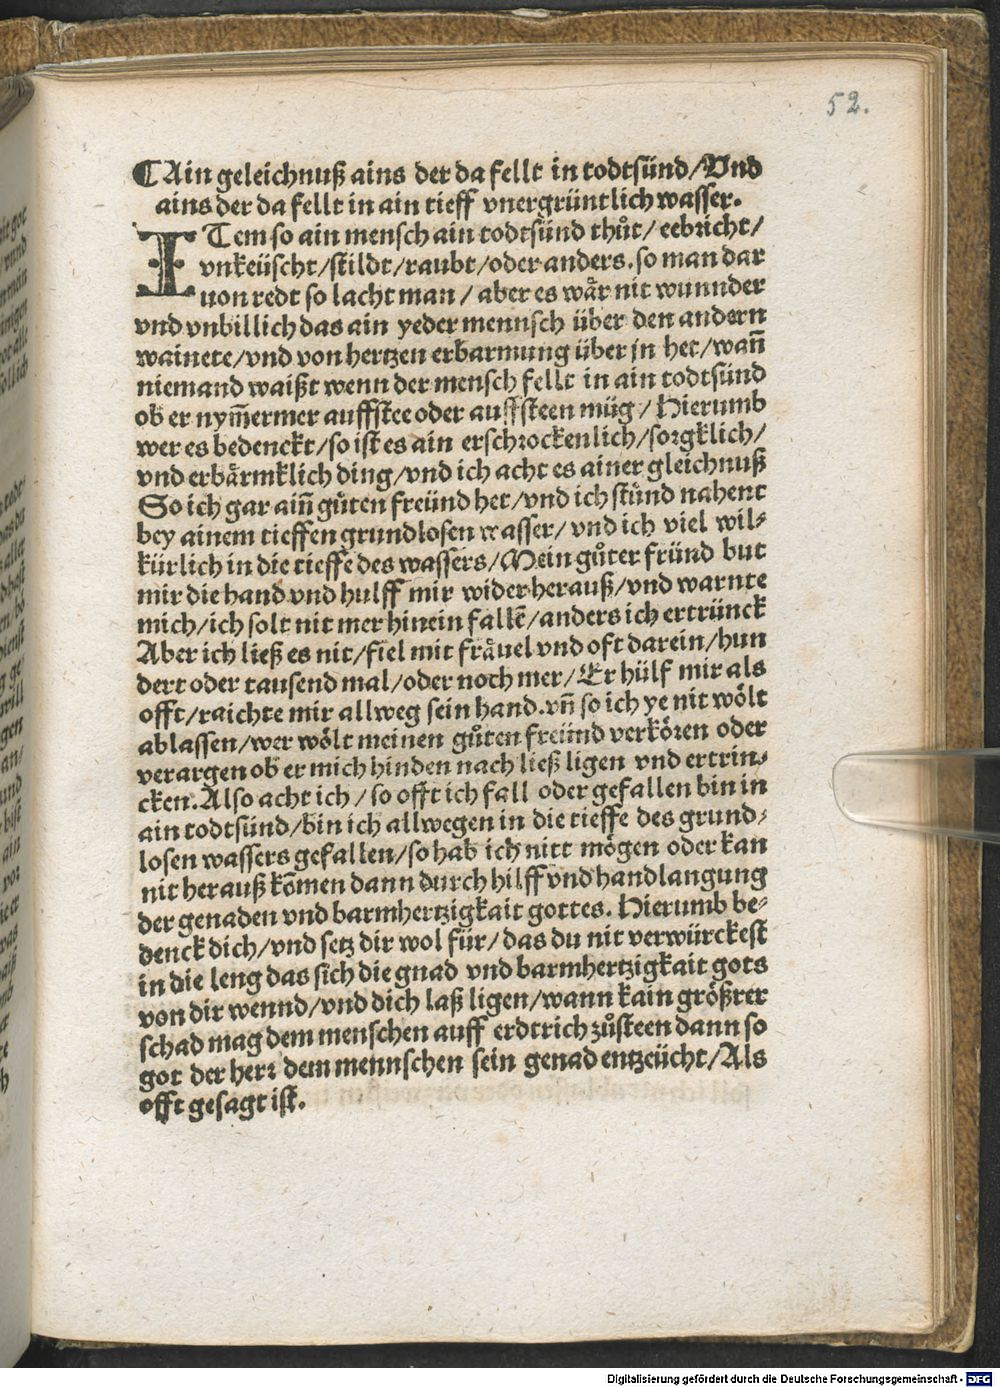 52.
¶Ain geleichnuß ains der da fellt in todtsünd/Vnd
ains der da fellt in ain tieff vnergrüntlich wasser.
ITem so ain mensch ain todtsünd thůt/eebricht/
vnkeüscht/stildt/raubt/oder anders.so man dar
uon redt so lacht man/aber es wår nit wunnder
vnd vnbillich das ain yeder mennsch über den andern
wainete/vnd von hertzen erbarmung über jn het/wañ
niemand waißt wenn der mensch fellt in ain todtsünd
ob er nym̃ermer auffstee oder auffsteen müg/Hierumb
wer es bedenckt/so ist es ain erschrockenlich/sorgklich/
vnd erbårmklich ding/vnd ich acht es ainer gleichnuß
So ich gar aiñ gůten freünd het/vnd ich stůnd nahent
bey ainem tieffen grundlosen wasser/vnd ich viel wil-
kürlich in die tieffe des wassers/Mein gůter fründ but
mir die hand vnd hulff mir wider herauß/vnd warnte
mich/ich solt nit mer hinein fallē/anders ich ertrünck
Aber ich ließ es nit/fiel mit fråuel vnd oft darein/hun
dert oder tausend mal/oder noch mer/Er hülf mir als
offt/raichte mir allweg sein hand.vñ so ich ye nit wölt
ablassen/wer wölt meinen gůten freünd verkören oder
verargen ob er mich hinden nach ließ ligen vnd ertrin-
cken.Also acht ich/so offt ich fall oder gefallen bin in
ain todtsünd/bin ich allwegen in die tieffe des grund-
losen wassers gefallen/so hab ich nitt mögen oder kan
nit herauß kōmen dann durch hilff vnd handlangung
der genaden vnd barmhertzigkait gottes. Hierumb be-
denck dich/vnd setz dir wol für/das du nit verwürckest
in die leng das sich die gnad vnd barmhertzigkait gots
von dir wennd/vnd dich laß ligen/wann kain größrer
schad mag dem menschen auff erdtrich zůsteen dann so
got der herr dem mennschen sein genad entzeücht/Als
offt gesagt ist.
Digitalisierung gefördert durch die Deutsche Forschungsgemeinschaft - DFG